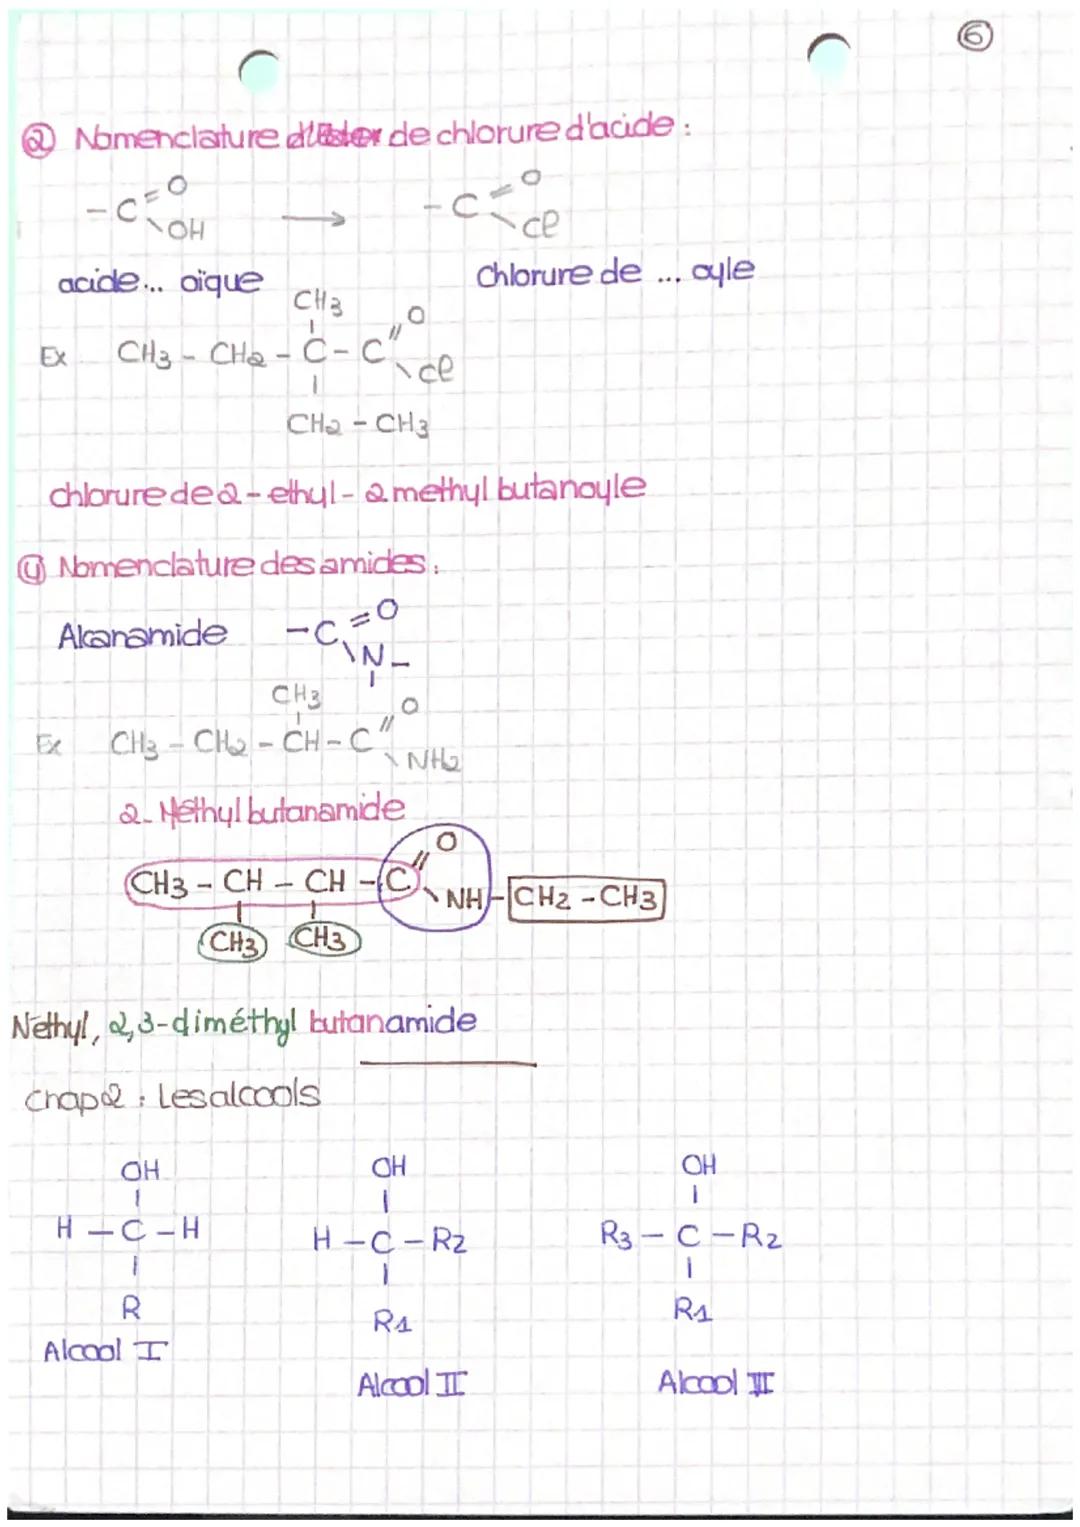 6
② Nomenclature de chlorure d'acide :
- C = O \ OH → - C = O \ Cl
acide... oïque Chlorure de ... oyle
CH3 O
Ex CH3 - CH2 - C - C \ Cl
CH2 - CH3
chlorure de 2-ethyl-2 methyl butanoyle
④ Nomenclature des amides :
Alcanamide - C = O
\ N -
CH3 O
Ex CH3 - CH2 - CH - C \ NH2
2-Méthyl butanamide
O
CH3 - CH - CH - C \ NH - CH2 - CH3
CH3 CH3
Nethyl, 2,3-diméthyl butanamide
Chap 2 : Les alcools
OH OH OH
H - C - H H - C - R2 R3 - C - R2
R R1 R1
Alcool I
Alcool II Alcool III